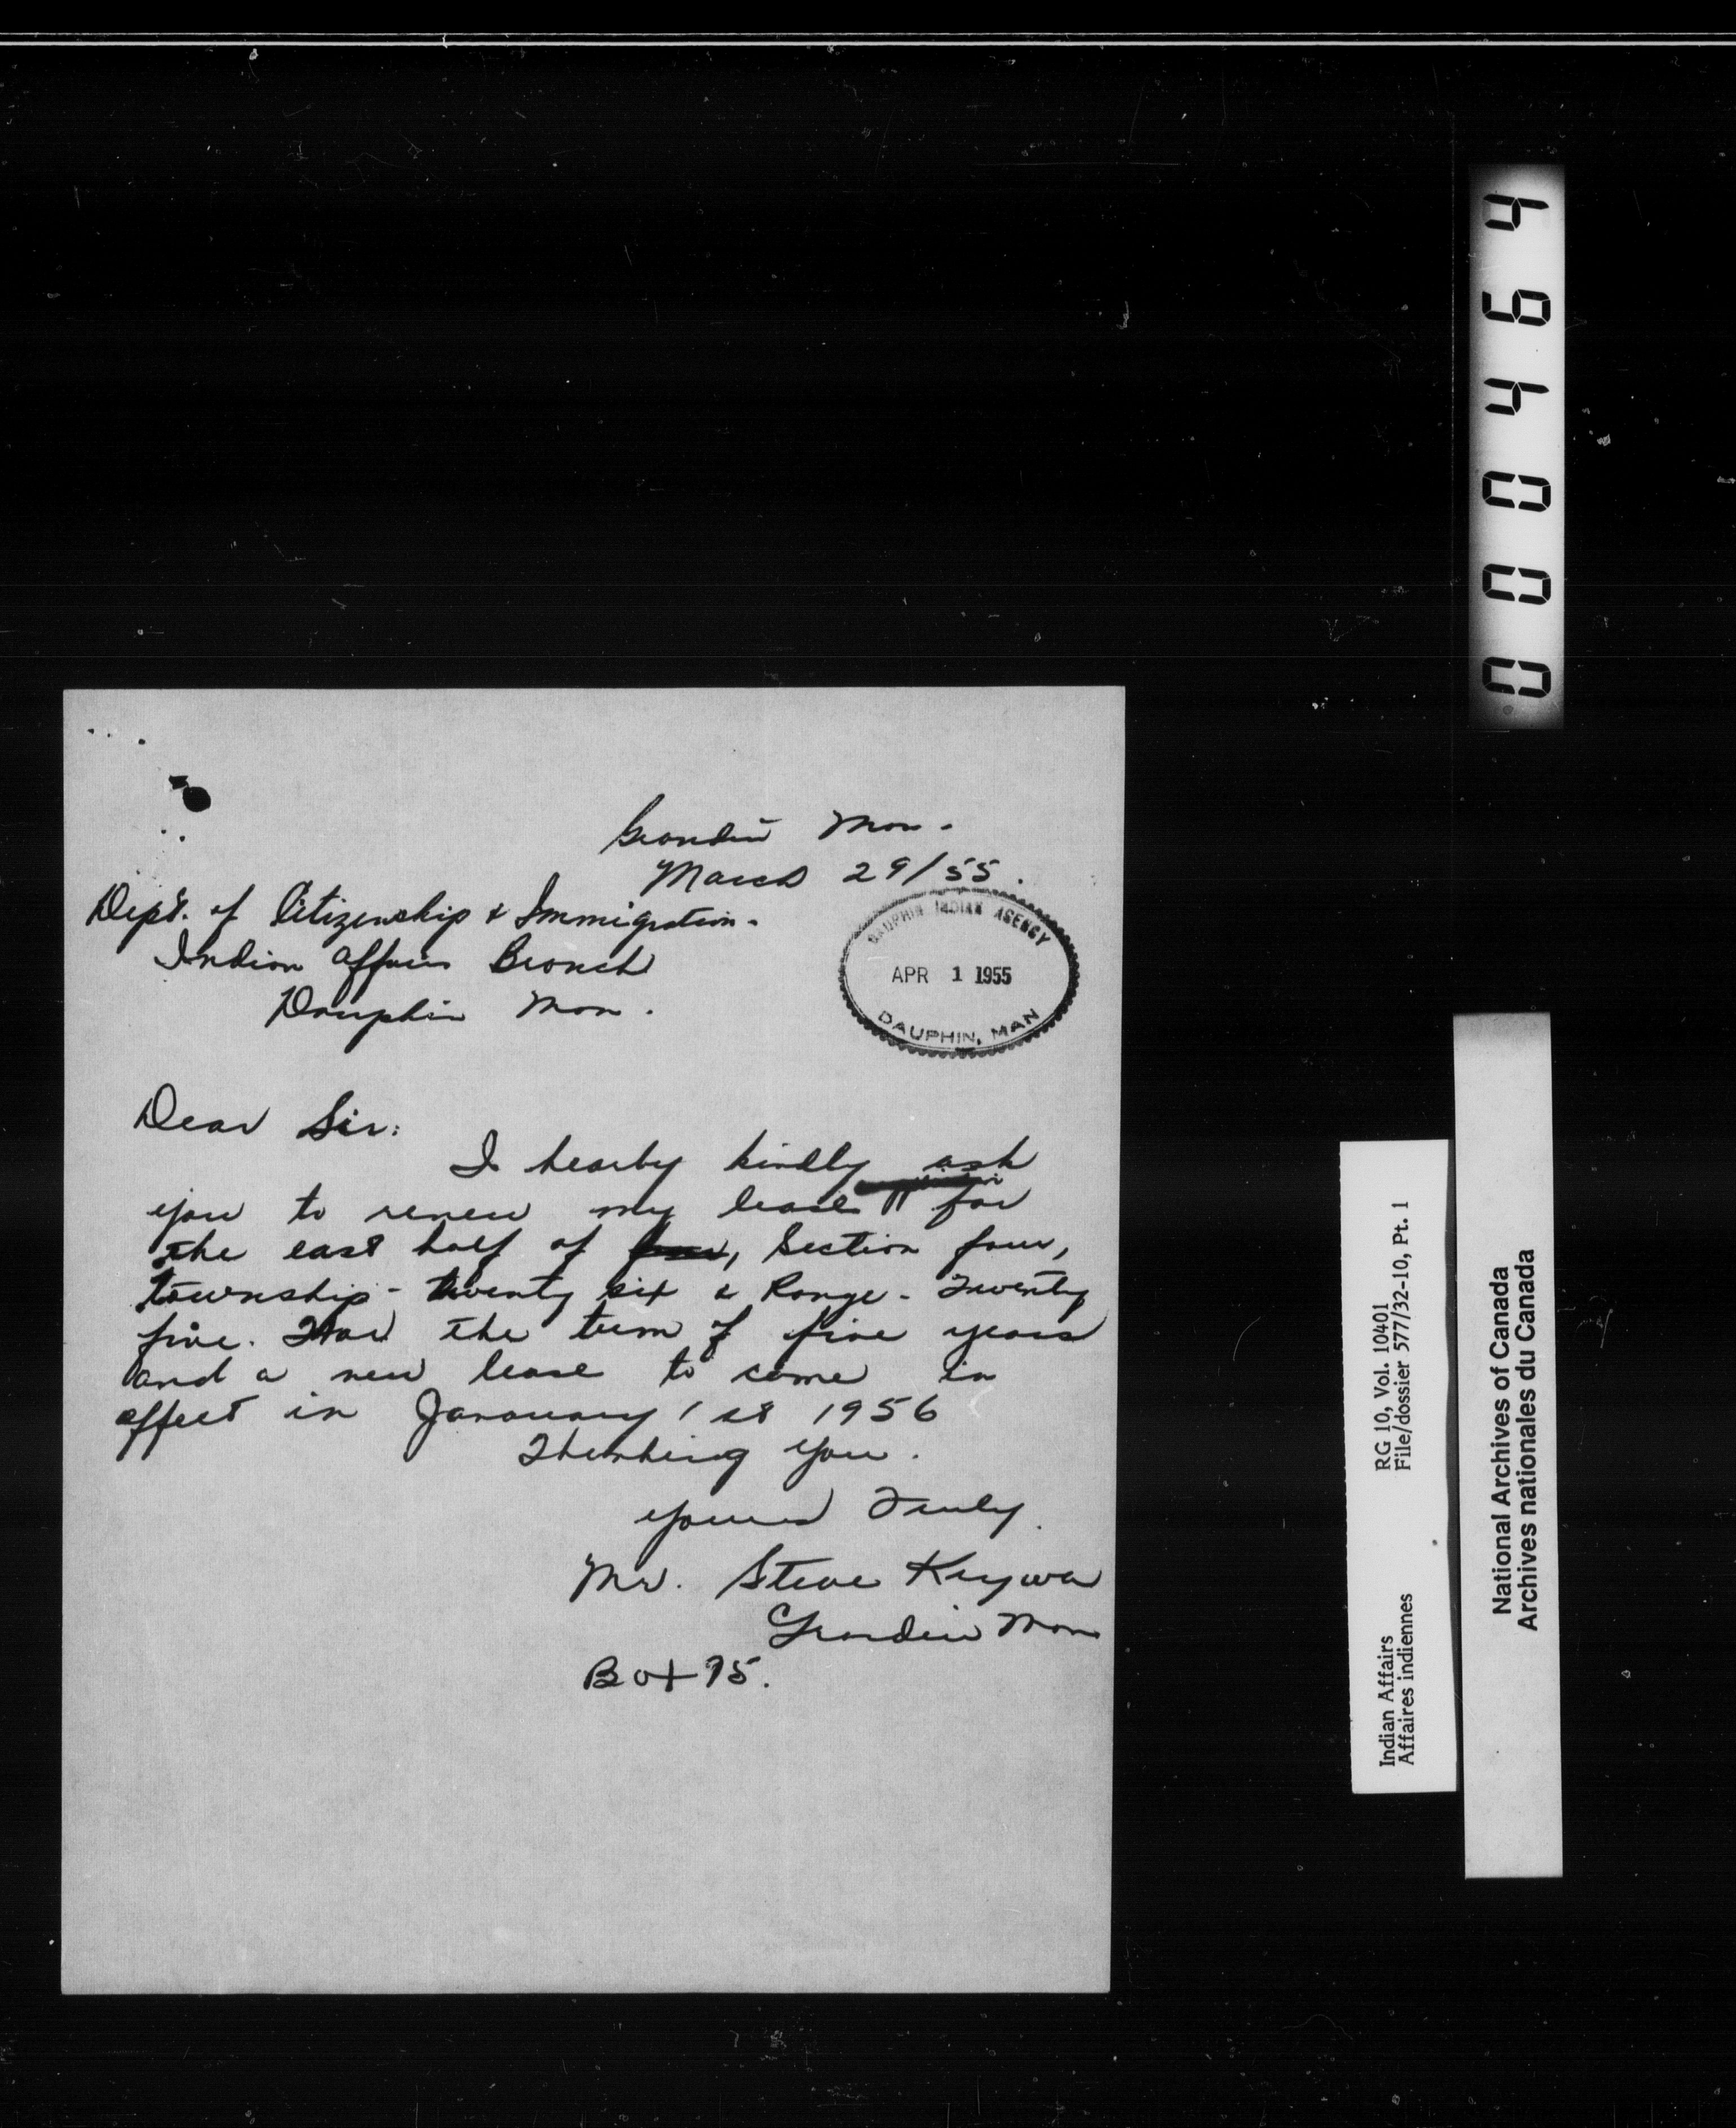 Grandin Man.
March 29/55.
Dept. of Citizenship & Immigration.
Indian Affairs Branch
Dauphin Man.
DAUPHIN INDIAN AGENCY
APR 1 1955
DAUPHIN, MAN
Dear Sir:
I hearby kindly ask
you to renew my lease for
the east half of four, Section four,
township - twenty six & Range - Twenty
five. For the term of five years
and a new lease to come in
effect in Janauary 1st 1956
Thanking you.
yours Truly.
Mr. Steve Krywa
Grandin Man
Box 75.
000464
RG 10, Vol. 10401
File/dossier 577/32-10, Pt. 1
Indian Affairs
Affaires indiennes
National Archives of Canada
Archives nationales du Canada